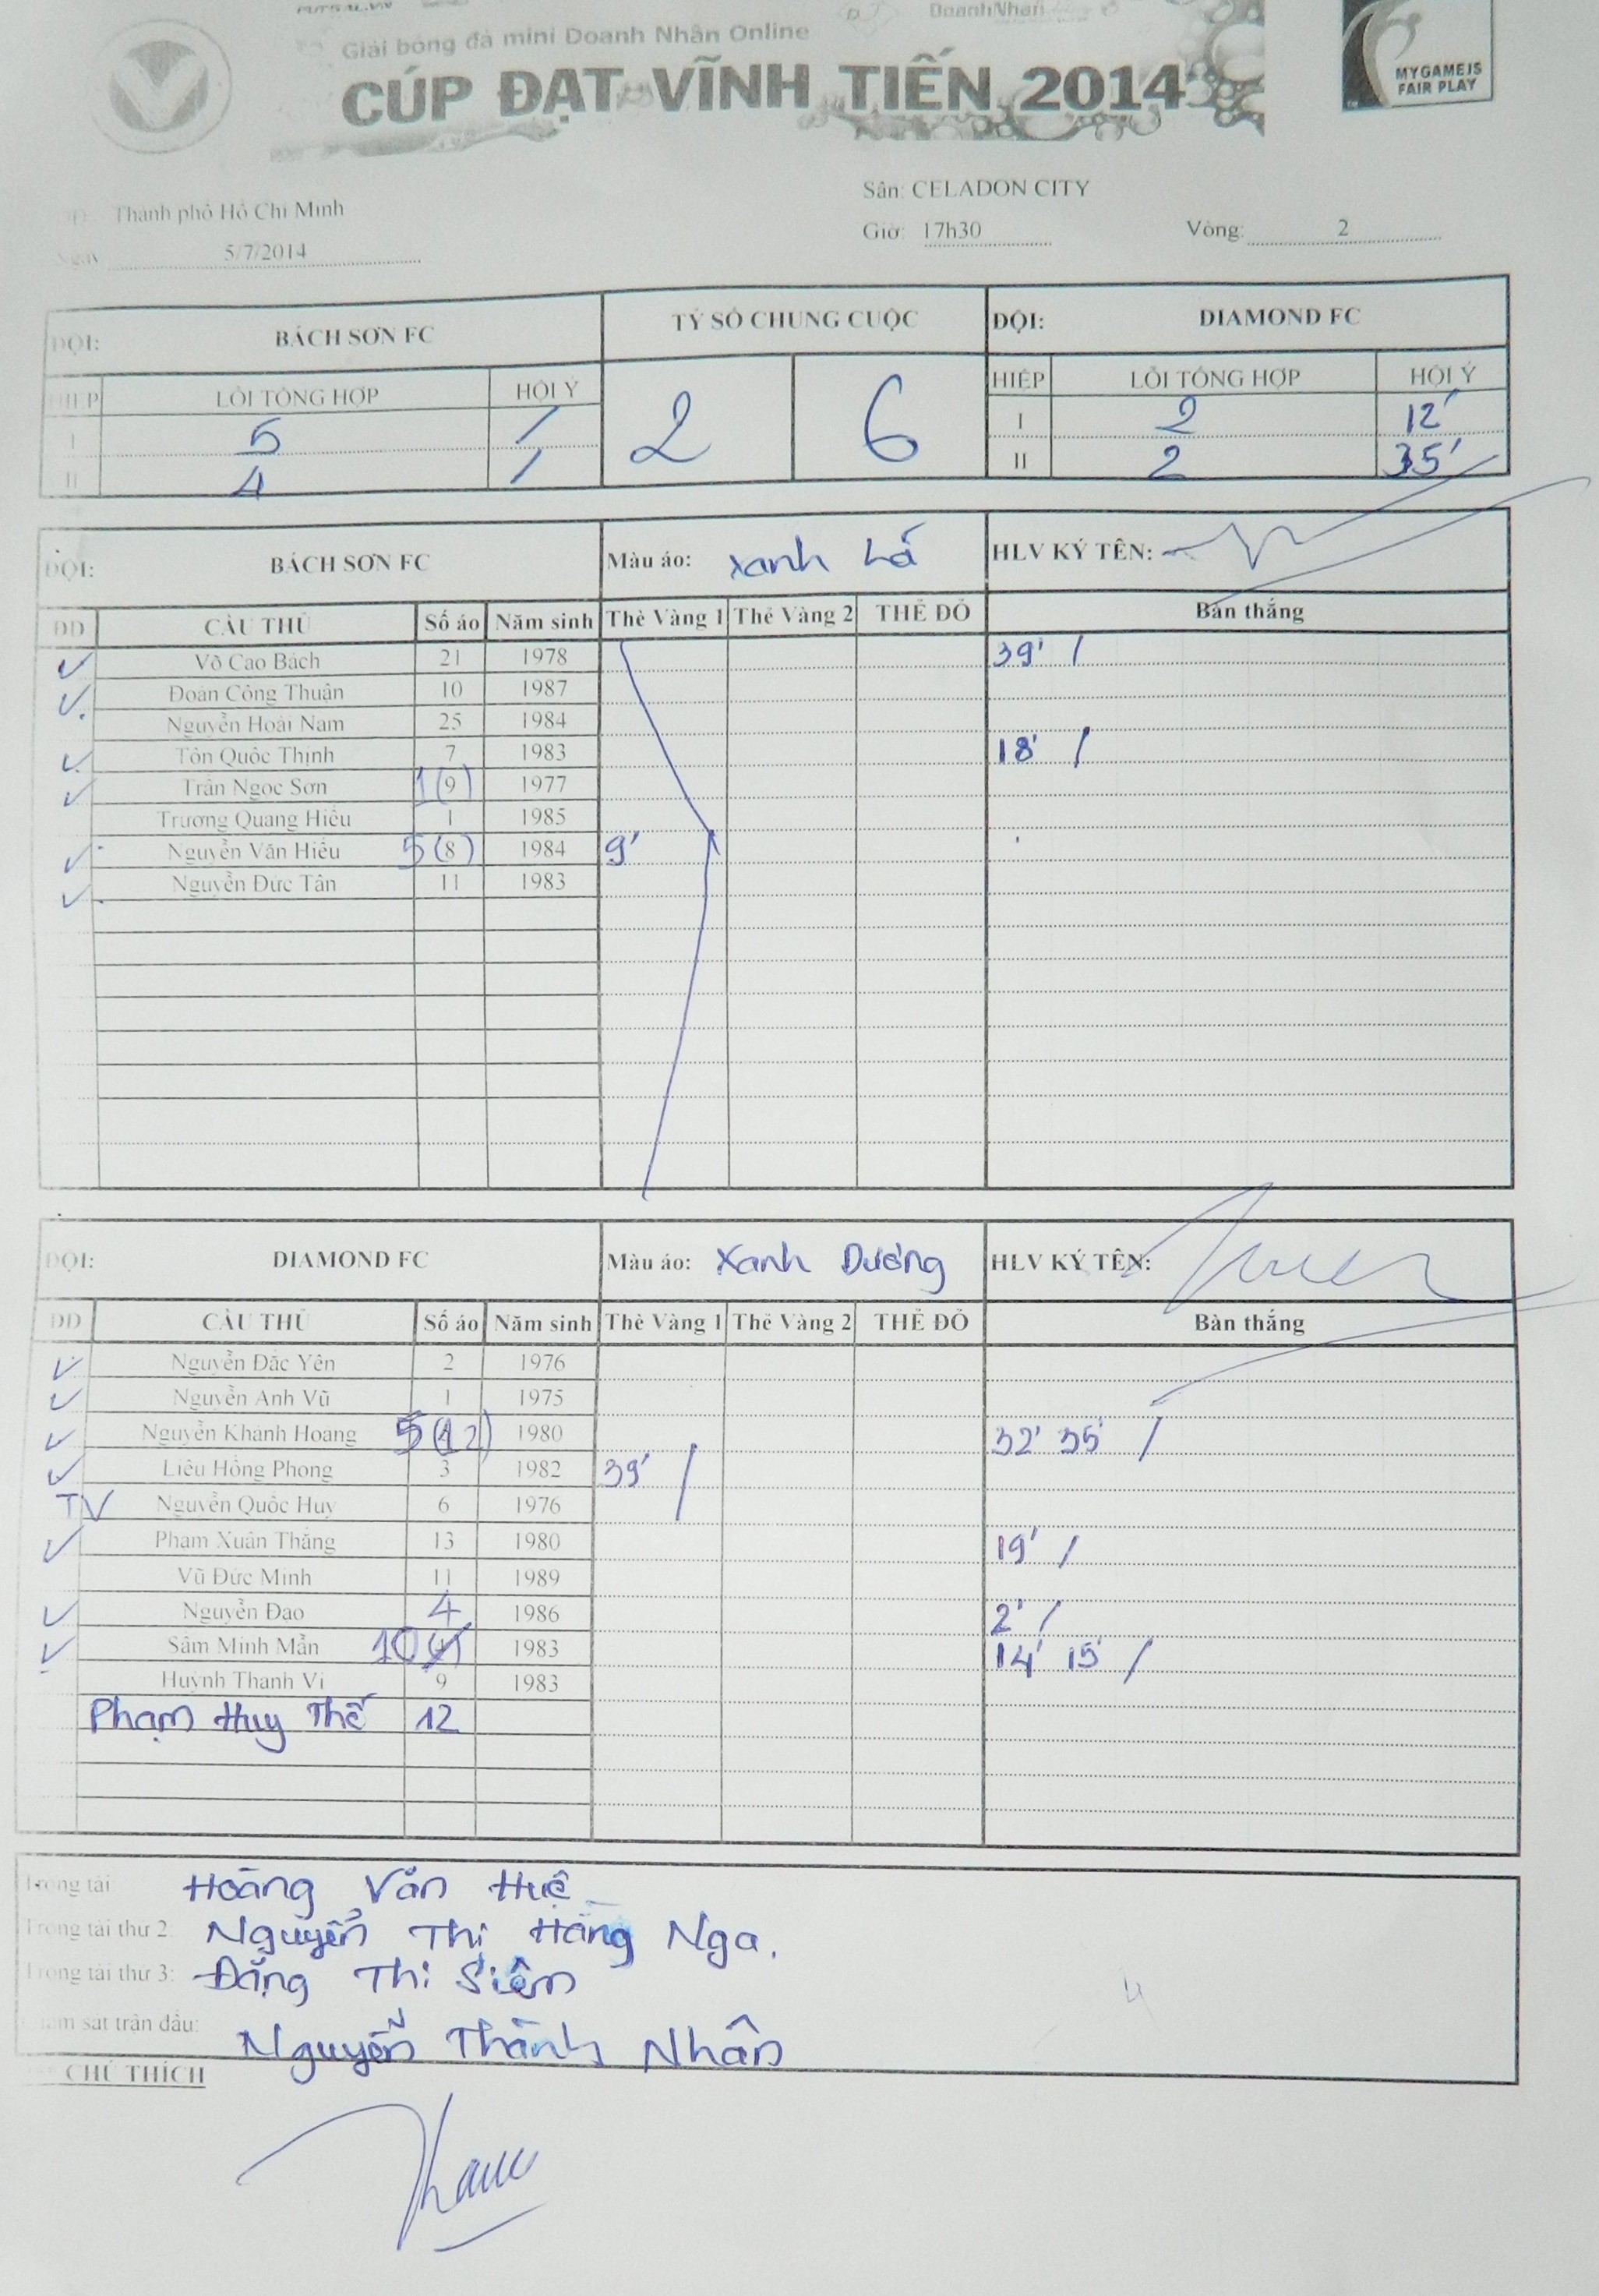 Giải bóng đá mini Doanh Nhân Online
DoanhNhan
CÚP ĐẠT VĨNH TIẾN 2014
MYGAMEIS
FAIR PLAY
Thành phố Hồ Chí Minh
Sân: CELADON CITY
Ngày 5/7/2014
Giờ: 17h30 Vòng: 2
ĐỘI: BÁCH SƠN FC TỶ SỐ CHUNG CUỘC ĐỘI: DIAMOND FC
HIỆP LỖI TỔNG HỢP HỘI Ý 2 6 HIỆP LỖI TỔNG HỢP HỘI Ý
I 5 / I 2 12'
II 4 / II 2 35'
ĐỘI: BÁCH SƠN FC Màu áo: Xanh Lá HLV KÝ TÊN:
DD CẦU THỦ Số áo Năm sinh Thẻ Vàng 1 Thẻ Vàng 2 THẺ ĐỎ Bàn thắng
✓ Võ Cao Bách 21 1978 39' /
✓ Đoàn Công Thuận 10 1987
Nguyễn Hoài Nam 25 1984
✓ Tôn Quốc Thịnh 7 1983 18' /
✓ Trần Ngọc Sơn 1(9) 1977
Trương Quang Hiếu 1 1985
✓ Nguyễn Văn Hiếu 5(8) 1984 9'
✓ Nguyễn Đức Tân 11 1983
ĐỘI: DIAMOND FC Màu áo: Xanh Dương HLV KÝ TÊN:
DD CẦU THỦ Số áo Năm sinh Thẻ Vàng 1 Thẻ Vàng 2 THẺ ĐỎ Bàn thắng
✓ Nguyễn Đắc Yên 2 1976
✓ Nguyễn Anh Vũ 1 1975
✓ Nguyễn Khánh Hoàng 5(12) 1980 32' 35' /
✓ Liêu Hồng Phong 3 1982 39' /
TV Nguyễn Quốc Huy 6 1976
✓ Phạm Xuân Thắng 13 1980 19' /
Vũ Đức Minh 11 1989
✓ Nguyễn Đạo 4 1986 2' /
✓ Sâm Minh Mẫn 10 1983 14' 15' /
Huỳnh Thanh Vi 9 1983
Phạm Huy Thế 12
Trọng tài: Hoàng Văn Huệ
Trọng tài thứ 2: Nguyễn Thị Hằng Nga.
Trọng tài thứ 3: Đặng Thị Siêm
Giám sát trận đấu: Nguyễn Thành Nhân
CHÚ THÍCH